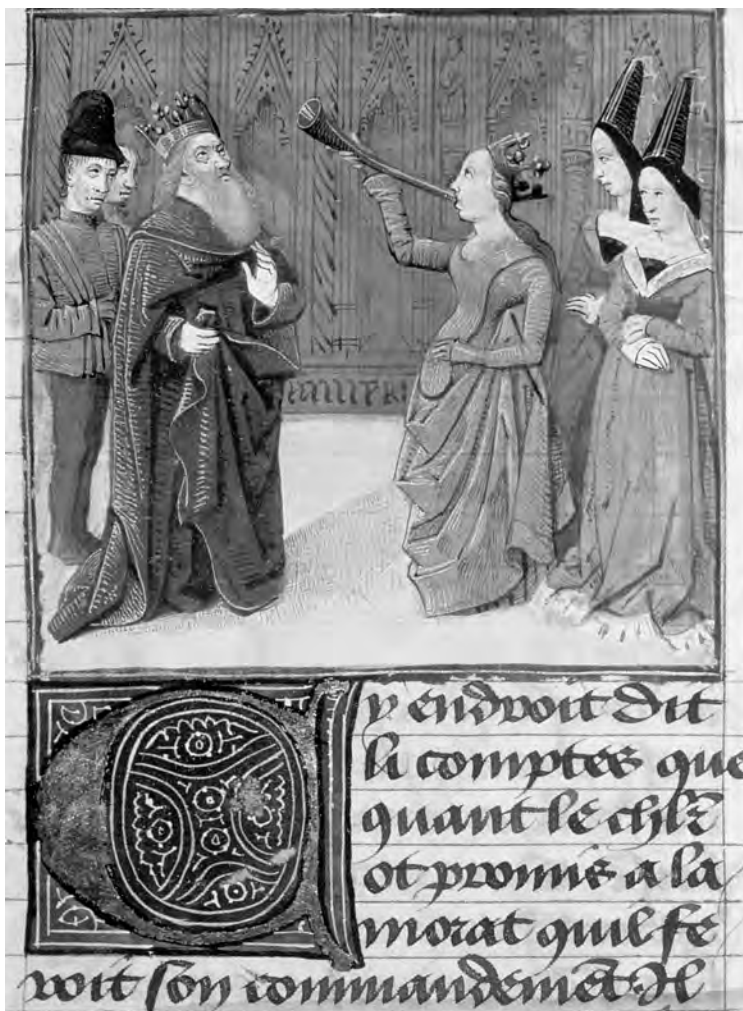 Cy endroit dit
li comptes que
quant le chlr̄
ot promis a la
morat quil fe
roit son commandemēt. Il